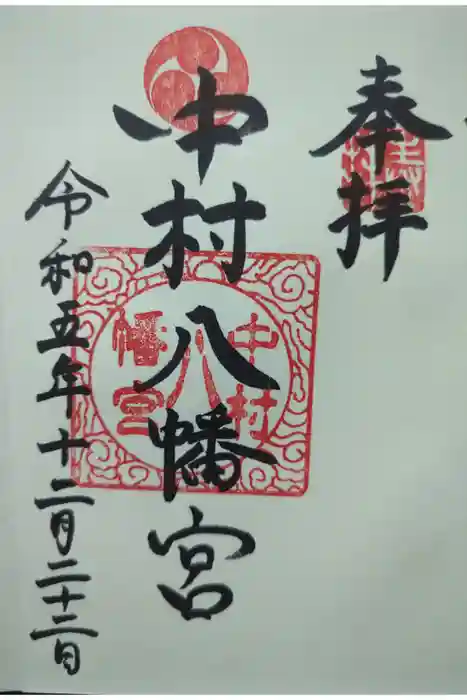 奉拝
中村八幡宮
令和五年十二月二十三日
中村
八
幡宮